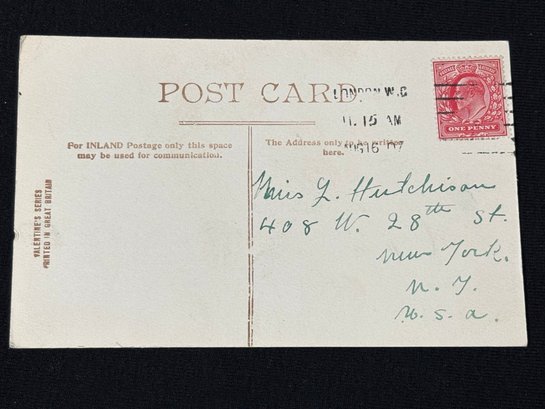 POST CARD.
LONDON W.C
11.15 AM
16 07
ONE PENNY
For INLAND Postage only this space
may be used for communication.
The Address only to be written
here.
VALENTINE'S SERIES
PRINTED IN GREAT BRITAIN
Miss L. Hutchison
408 W. 28th St.
New York.
N. Y.
U. S. A.